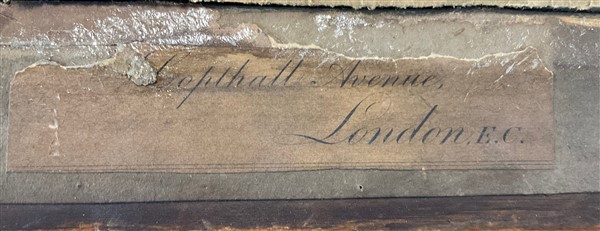 Copthall Avenue,
London, E.C.